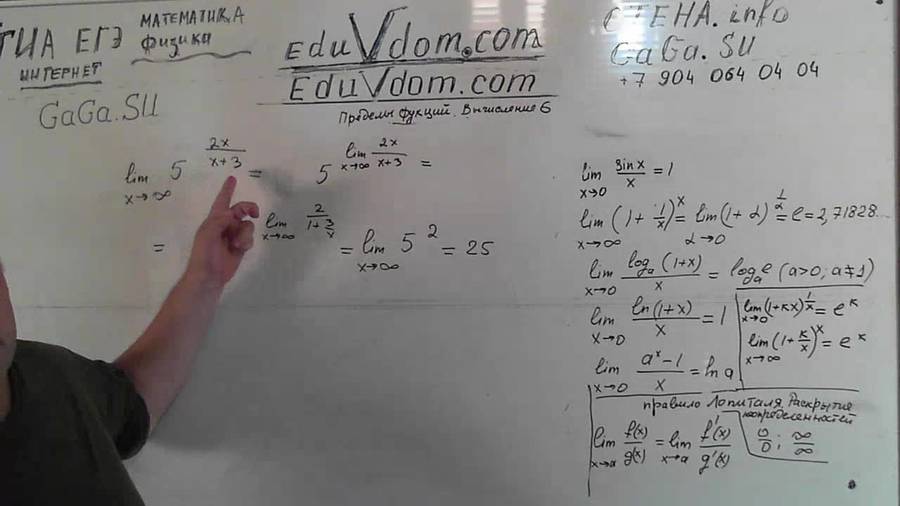 ГИА ЕГЭ МАТЕМАТИКА
физика
ИНТЕРНЕТ
GaGa.SU
EduVdom.com
EduVdom.com
Пределы фукций. Вычисление 6
СТЕНА.info
GaGa.SU
+7 904 064 04 04
lim x→∞ 5^(2x/(x+3)) = 5^(lim x→∞ 2x/(x+3)) =
= lim x→∞ 2/(1+3/x) = lim x→∞ 5^2 = 25
lim x→0 sinx/x = 1
lim x→∞ (1+1/x)^x = lim α→0 (1+α)^(1/α) = e = 2,71828...
lim x→0 log_a(1+x)/x = log_a e (a>0; a≠1)
lim x→0 ln(1+x)/x = 1
lim x→0 (1+кx)^(1/x) = e^к
lim x→∞ (1+к/x)^x = e^к
lim x→0 (a^x-1)/x = ln a
правило Лопиталя. Раскрытие
неопределенностей
lim x→a f(x)/g(x) = lim x→a f'(x)/g'(x)
0/0 ; ∞/∞